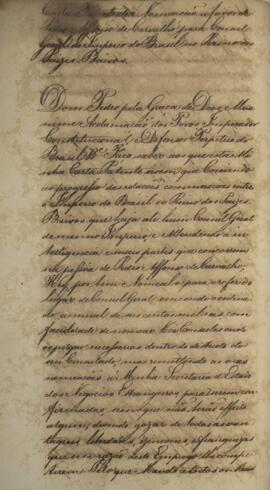 Carta Patente Nomeando a favor de
Pedro Affonso de Carvalho para Consul
Geral do Imperio do Brasil no Reino dos
Paizes Baixos.
Dom Pedro pela Graça de Deos, e Una
nime Acclamação dos Povos Imperador
Constitucional, e Defensor Perpetuo do
Brasil &ª Faço saber aos que esta Mi
nha Carta Patente virem que Convindo
ao progresso das relacões commerciaes entre
o Imperio do Brasil e o Reino dos Paizes
Baixos que haja ali hum Consul Geral
do mesmo Imperio e Attendendo a in
telligencia e mais partes que concorrem
na pessoa de Pedro Affonso de Carvalho,
Hey por bem Nomeal-o para o referido
lugar de Consul Geral vencendo o ordena
do annual de seis centos mil reis com
faculdade de nomear Vice Consules onde
os julgar necessarios dentro do districto do
seu Consulado, mas remettendo as suas
nomeações á Minha Secretaria d'Estado
dos Negocios Estrangeiros para serem con
firmadas, sem o que não terão effeito
algum; devendo gozar de todas as van
tagens liberdades, izenções e franquezas
que em razão deste Emprego lhe compe
tirem. Pelo que Mando a todos